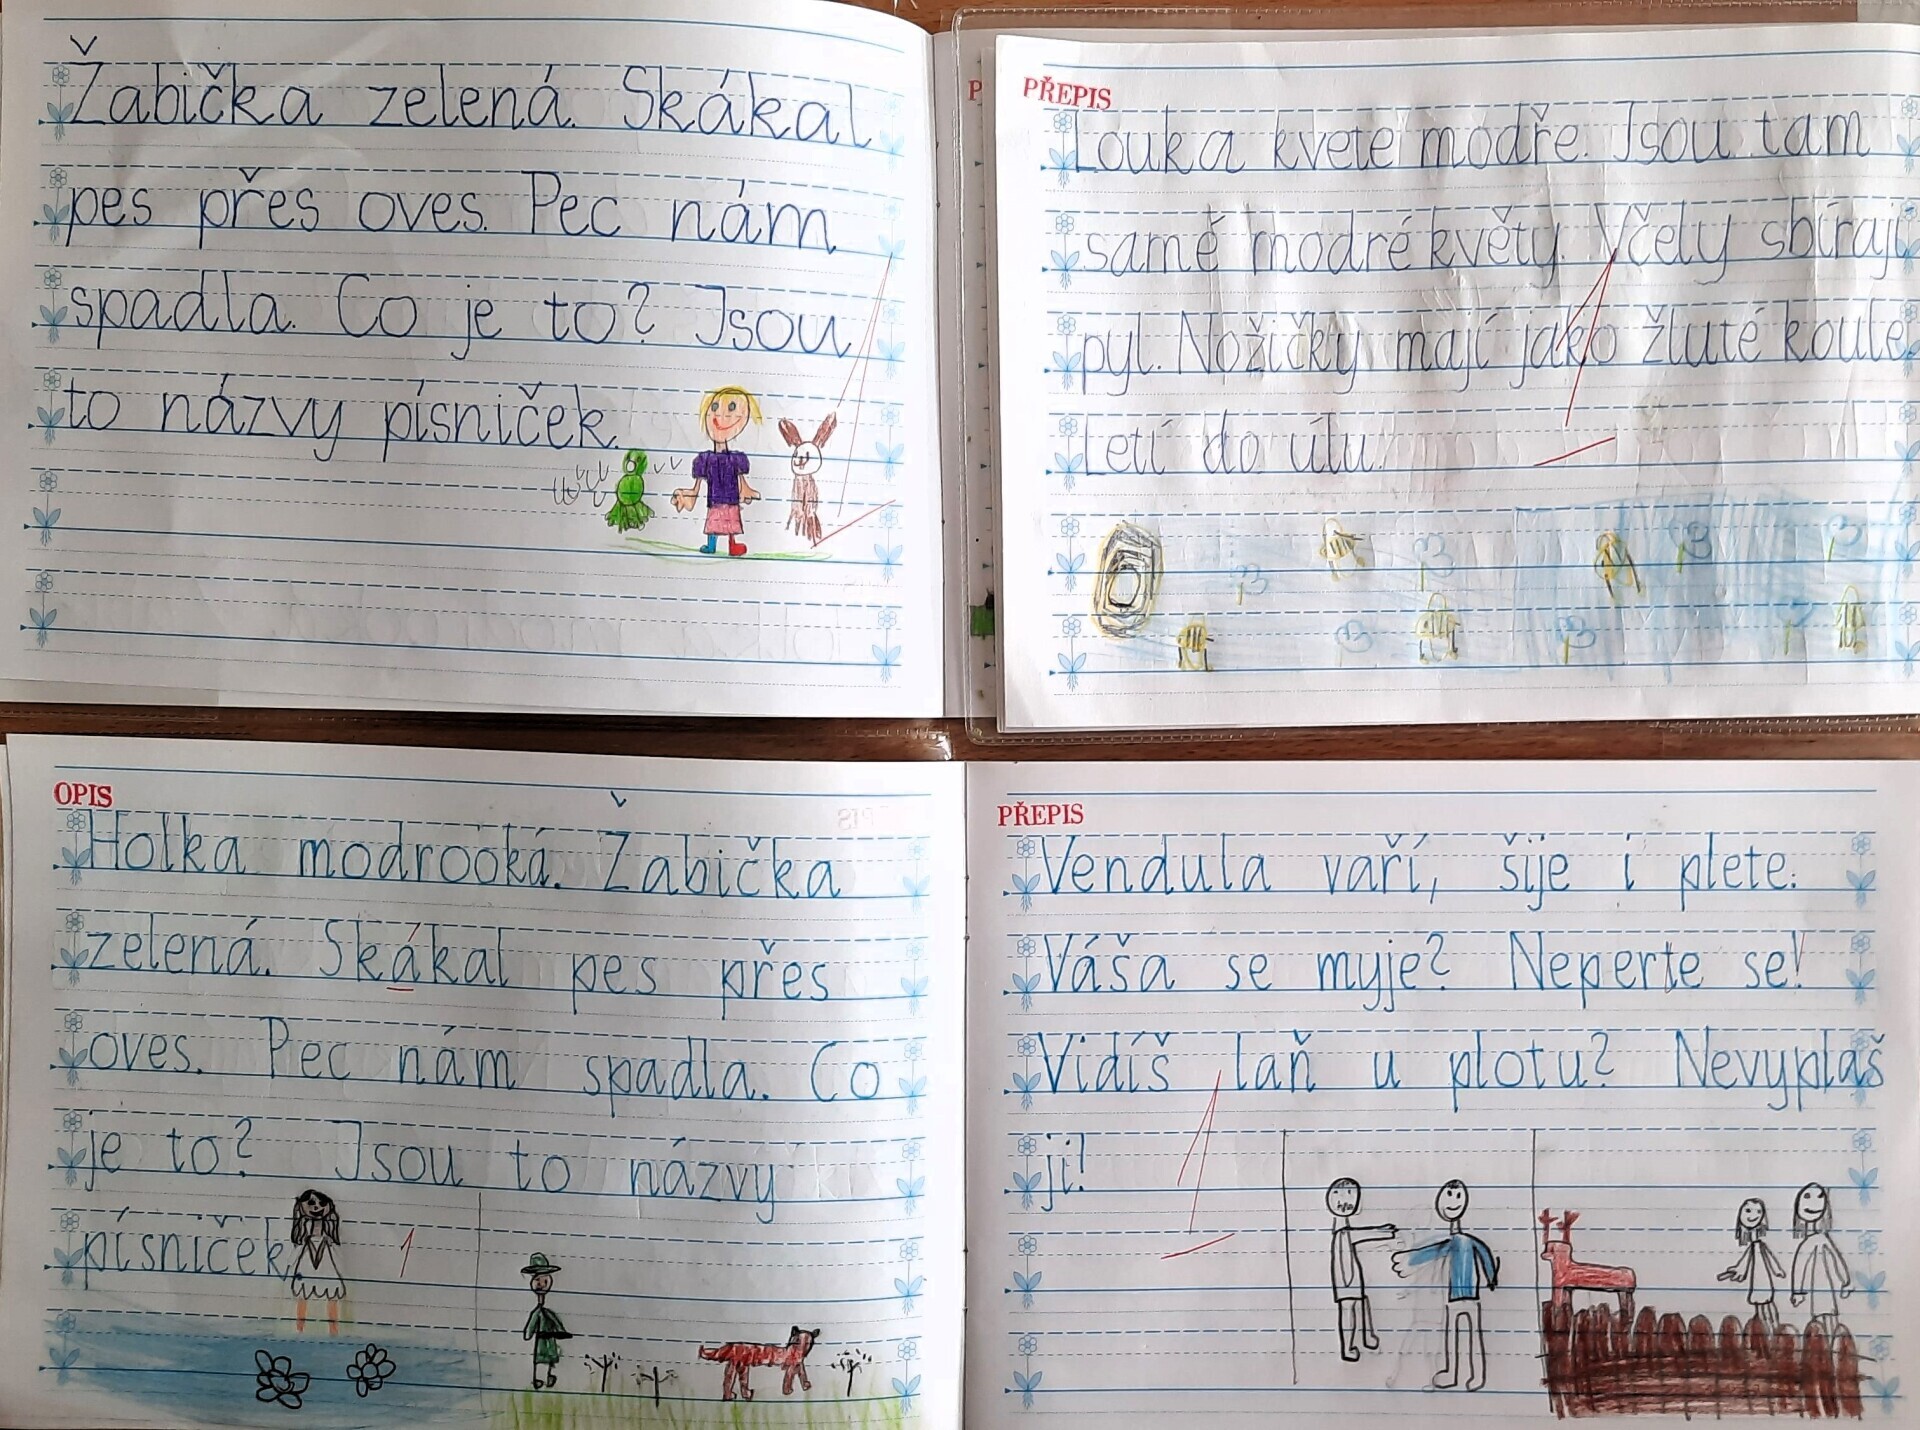 Žabička zelená. Skákal
pes přes oves. Pec nám
spadla. Co je to? Jsou
to názvy písniček.
PŘEPIS
Louka kvete modře. Jsou tam
samé modré květy. Včely sbírají
pyl. Nožičky mají jako žluté koule.
Letí do úlu.
OPIS
Holka modrooká. Žabička
zelená. Skákal pes přes
oves. Pec nám spadla. Co
je to? Jsou to názvy
písniček.
1
PŘEPIS
Vendula vaří, šije i plete.
Váša se myje? Neperte se!
Vidíš laň u plotu? Nevyplaš
ji!